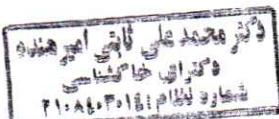 دکتر محمد علی ثابتی امیرهنده
دکترای خاکشناسی
شماره نظام: